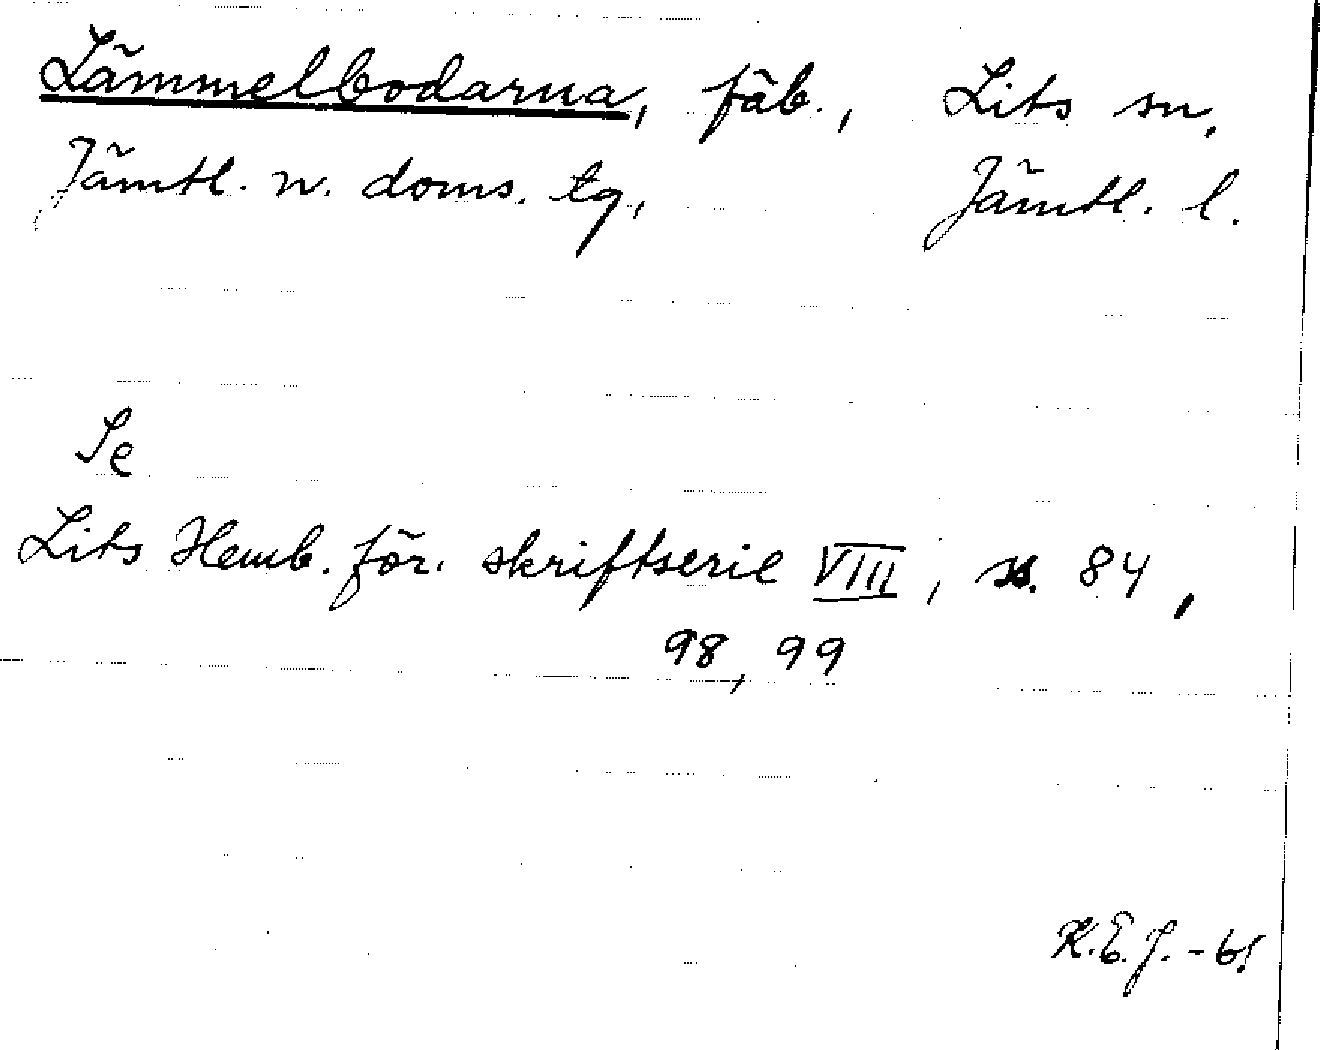 Lämmelbodarna, fäb., Lits sn,
Jämtl. n. doms. tg, Jämtl. l.
Se
Lits Hemb. för. skriftserie VIII, s. 84,
98, 99
K.E.J. -